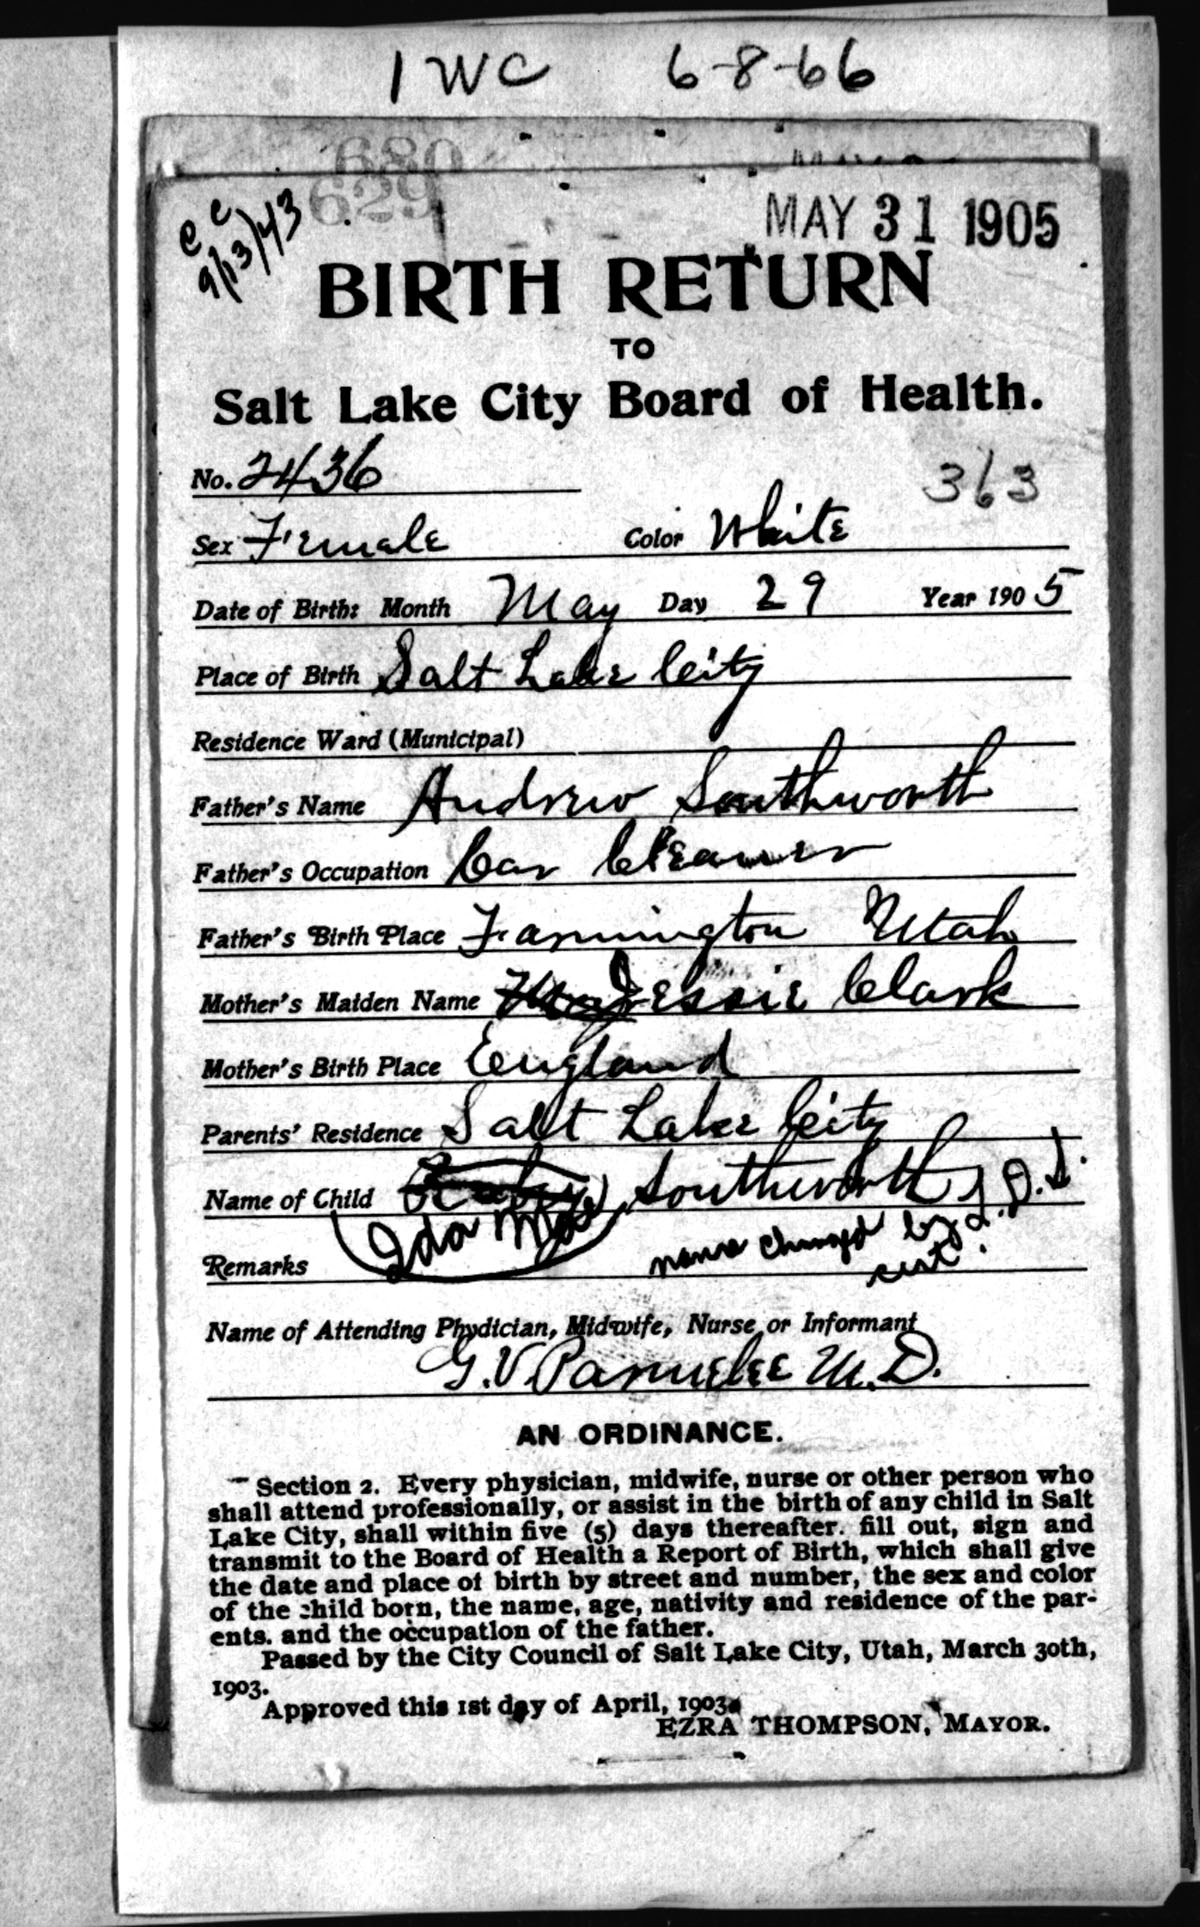 1 WC 6-8-66
680
629
c c
9/13/43
MAY 31 1905
BIRTH RETURN
TO
Salt Lake City Board of Health.
No. 2436
363
Sex Female Color White
Date of Birth: Month May Day 29 Year 1905
Place of Birth Salt Lake City
Residence Ward (Municipal)
Father's Name Andrew Southworth
Father's Occupation Car Cleaner
Father's Birth Place Farmington Utah
Mother's Maiden Name Jessie Clark
Mother's Birth Place England
Parents' Residence Salt Lake City
Name of Child Baby Southworth
Ida Mae
name changed by L.D.S.
cert.
Remarks
Name of Attending Phydician, Midwife, Nurse or Informant
G. V. Parmelee M.D.
AN ORDINANCE.
Section 2. Every physician, midwife, nurse or other person who
shall attend professionally, or assist in the birth of any child in Salt
Lake City, shall within five (5) days thereafter. fill out, sign and
transmit to the Board of Health a Report of Birth, which shall give
the date and place of birth by street and number, the sex and color
of the child born, the name, age, nativity and residence of the par-
ents. and the occupation of the father.
Passed by the City Council of Salt Lake City, Utah, March 30th,
1903.
Approved this 1st day of April, 1903.
EZRA THOMPSON, MAYOR.